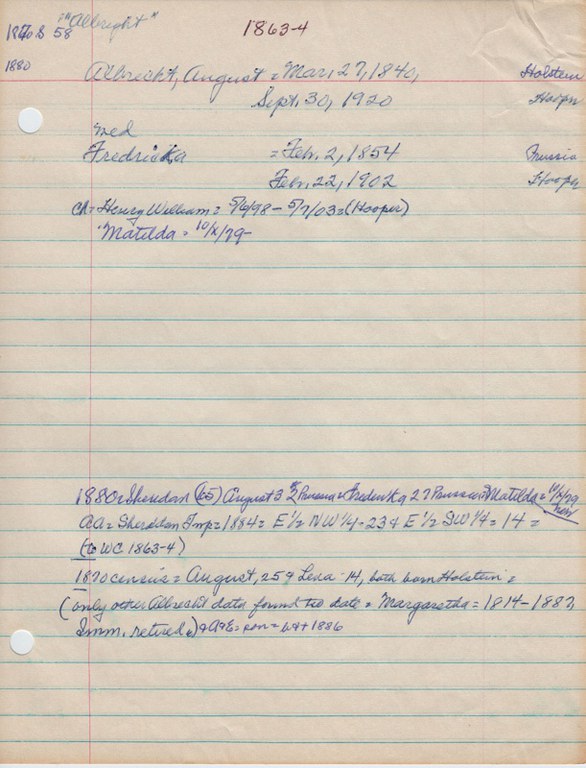 "Albright"
58 1863-4
1880 Albrecht, August = Mar. 27, 1840, Holstein
Sept. 30, 1920
med
Fredricka = Feb. 2, 1854 Prussia
Feb. 22, 1902
Ch = Henry William = 5/6/98 - 5/7/03 = (Hooper)
Matilda = 10/x/79 -
1880 = Sheridan August 3 Fredericka 27 Prussia Matilda = 10/x/79
AA = Sheridan Twp = 1884 = E 1/2 NW 1/4 - 23 & E 1/2 SW 1/4 = 14 =
(to WC 1863-4)
1870 census = August, 25 & Lena - 14, both born Holstein =
(only other Albrecht data found to date = Margaretha = 1814 - 1887,
Imm. retired.) & A & E = son = 1886